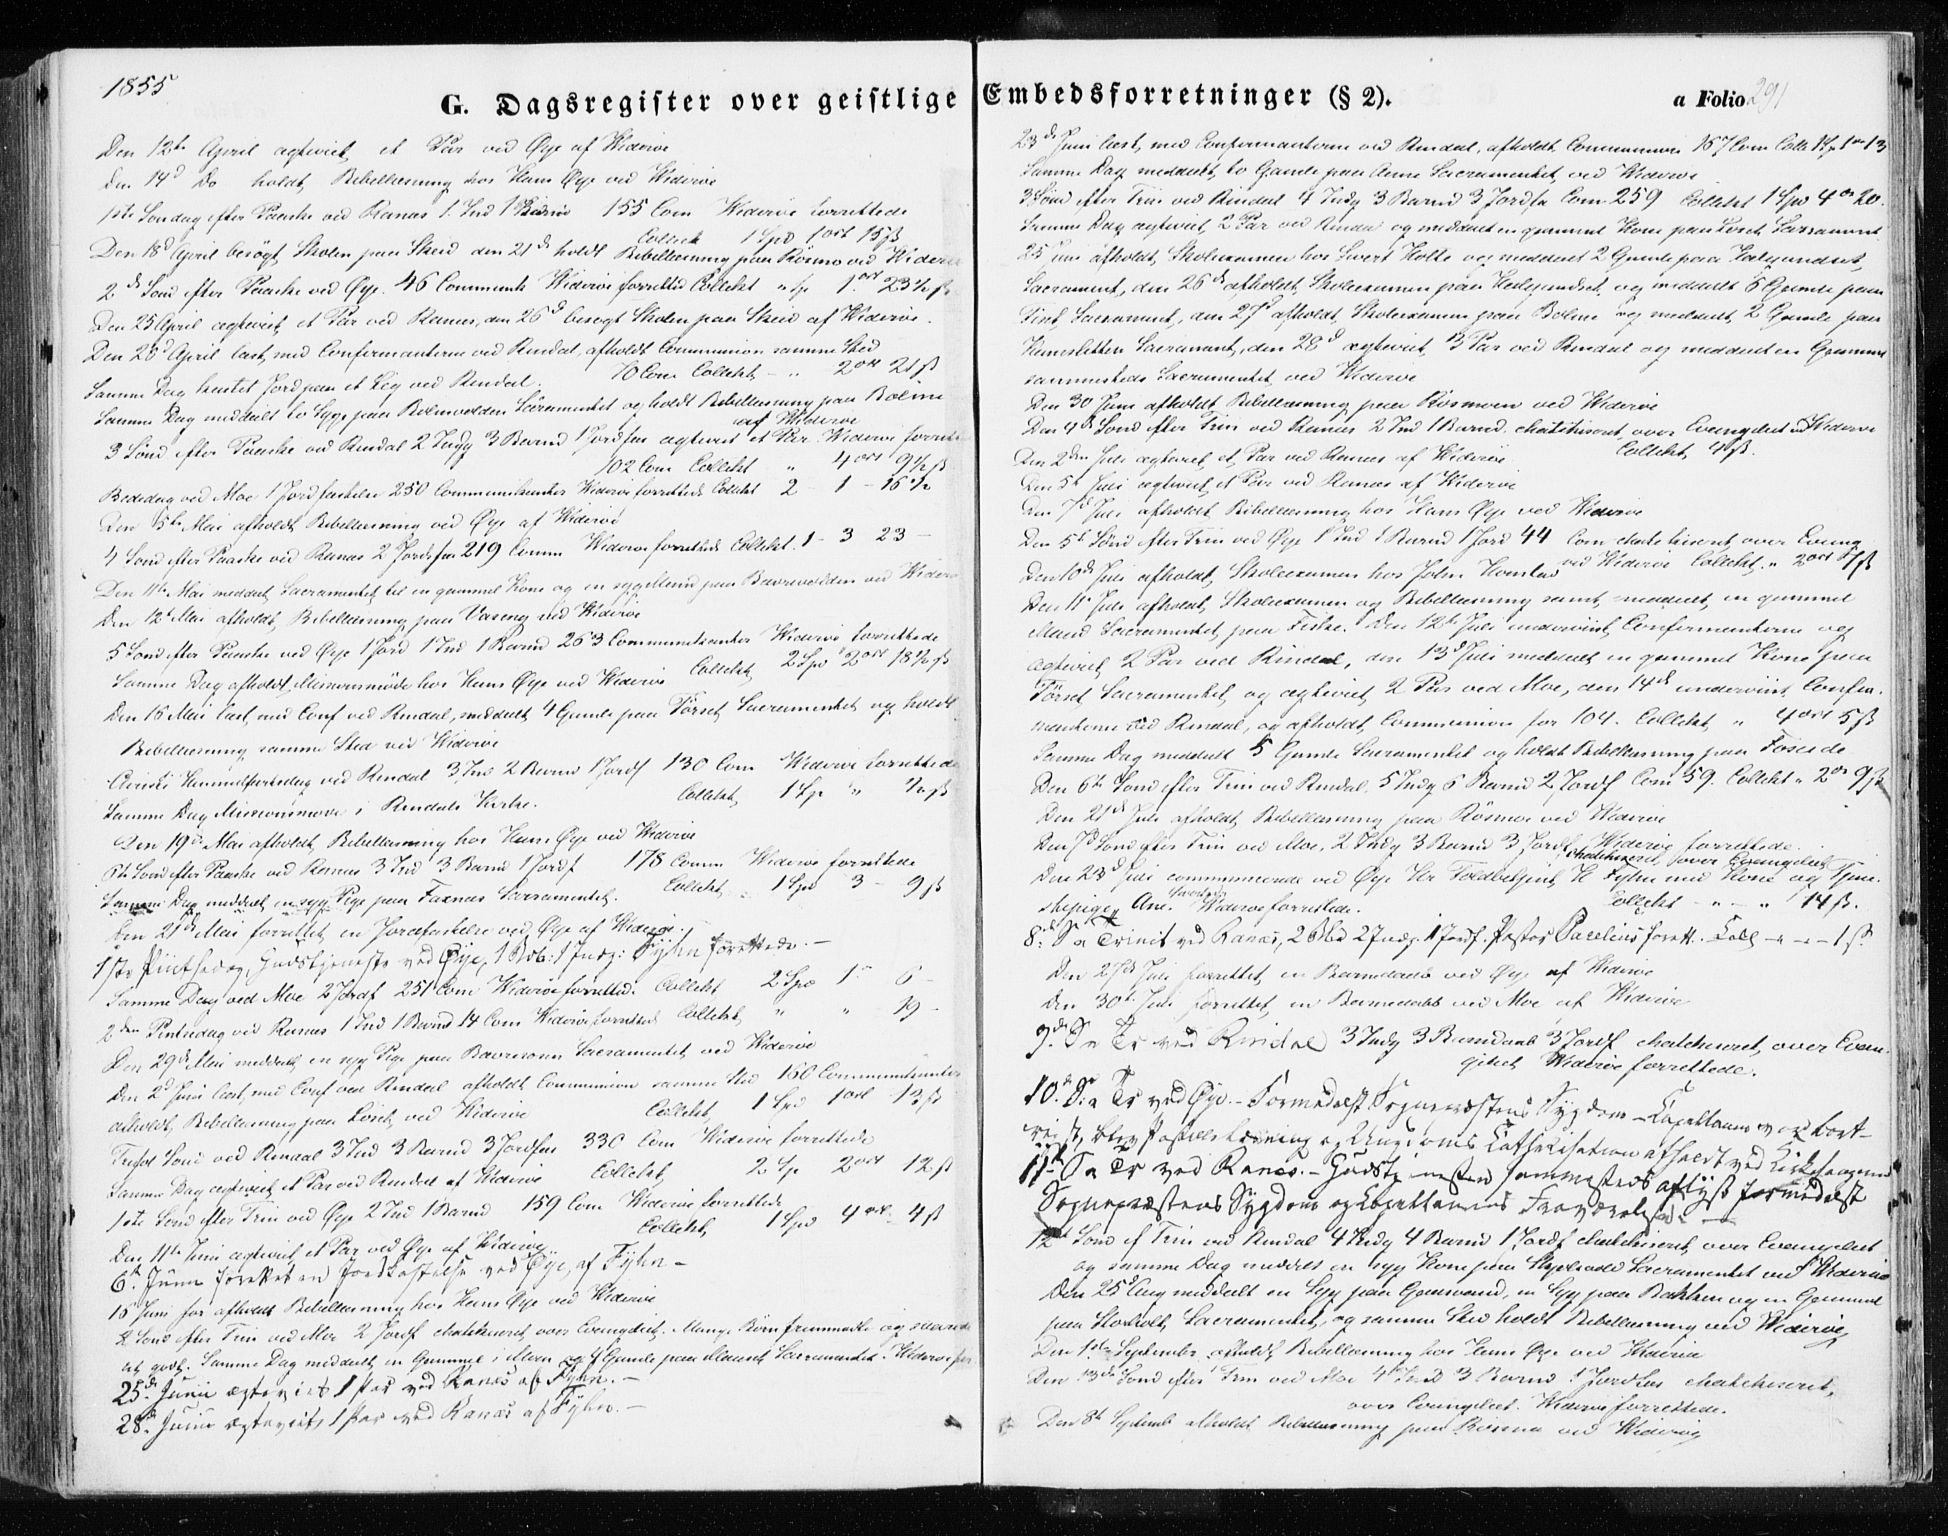 1855
G. Dagsregister over geistlige Embedsforretninger (§ 2).
a Folio 291
Den 12te April ægteviet et Par ved Øye af Widerøe
Den 14d Do holdt Bibellæsning hos Hans Øye ved Widerøe
1ste Søndag efter Paaske ved Ranæs 1 Ind 1 Barnd 155 Com Widerøe forrettede
Collect 1 Spd 1 ort 15 ß
Den 18d April besøgt Skolen paa Skeid den 21d holdt Bibellæsning paa Rösmo ved Widerøe
2d Sönd efter Paaske ved Øye. 46 Communik Widerøe forrettede Collekt " Sp 1 ort 23½ ß
Den 25 April ægteviet et Par ved Ranæs, den 26d besøgt Skolen paa Skeid af Widerøe.
Den 28d April læst med Confirmanterne ved Rindal, afholdt Communion samme Sted
70 Com Collekt - " 2 ort 21 ß
Samme Dag kastet Jord paa et Lig ved Rindal.
Samme Dag meddelt to Syge paa Bolmevolden Sacramentet og holdt Bibellæsning paa Bolme
af Widerøe
3 Sönd efter Paaske ved Rindal 2 Indg 3 Barnd 1 Jordfæs ægteviet et Par. Widerøe forrett
102 Com Collekt " 4 ort 9½ ß
Bededag ved Moe 1 Jordfæstelse 250 Communikanter Widerøe forrettede Collekt 2 - 1 - 16½
Den 5te Mai afholdt Bibellæsning ved Øye af Widerøe
4 Sönd efter Paaske ved Ranæs 2 Jordfæs 219 Comm Widerøe forrettede Collekt. 1 - 3 23 -
Den 11te Mai meddelt Sacramentet til en gammel Kone og en syg paa Bævrevolden ved Widerøe
Den 12te Mai afholdt Bibellæsning paa Vaseng ved Widerøe
5 Sönd efter Paaske ved Øye 1 Jord 1 Ind 1 Barnd 263 Communikanter Widerøe forrettede
Collekt 2 Spd 2 ort 18½ ß
Samme Dag afholdt Missionsmöde hos Hans Øye ved Widerøe
Den 16 Mai læst med Conf ved Rindal, meddelt 4 Gamle paa Törset Sacramentet og holdt
Bibellæsning samme Sted ved Widerøe
Christi Himmelfartsdag ved Rindal 3 Ind 2 Barnd 1 Jordf 130 Com Widerøe forrettede
Collekt 1 Sp " ½ ß
Samme Dag Missionsmöde i Rindals Kirke.
Den 19de Mai afholdt Bibellæsning hos Hans Øye ved Widerøe
6te Sönd efter Paaske ved Ranæs 3 Ind 3 Barnd 1 Jordf 178 Comm Widerøe forrettede
Collekt 1 Spd 3 - 9 ß
Samme Dag meddelt en syg Pige paa Faxnæs Sacramentet.
Den 21de Mai forrettet en Jordfæstelse ved Øye af Widerøe.
1ste Pintsedag, Gudstjeneste ved Øye, 1 Brb: 1 Indg: Fyhn forrettede. -
Samme Dag ved Moe 2 Jordf 251 Com Widerøe forrettede. Collekt 2 Spd 1 - 6 -
2den Pintsedag ved Ranæs 1 Ind 1 Barnd 14 Com Widerøe forrettede Collekt " " 19 -
Den 29de Mai meddelt en syg Pige paa Bævremoen Sacramentet ved Widerøe
Den 2d Juni læst med Conf ved Rindal afholdt Communion samme Sted 160 Communikanter
Collekt 1 Spd 1 ort 13 ß
Afholdt Bibellæsning paa Löset ved Widerøe
Trefol Sönd ved Rindal 3 Ind 3 Barnd 3 Jordfæs 330 Com Widerøe forrettede
Collekt 2 Sp 2 ort 12 ß
Samme Dag ægteviet et Par ved Rindal af Widerøe
1ste Sönd efter Trin ved Øye 2 Ind 1 Barnd 159 Com Widerøe forrettede
Collekt 1 Spd 4 ort 4 ß
Den 11te Juni ægteviet et Par ved Øye af Widerøe
6te Junii forrettet en Jordfæstelse ved Øye, af Fyhn -
16 Juni afholdt Bibellæsning hos Hans Øye ved Widerøe
2 Sönd efter Trin ved Moe 2 Jordf chatechiseret over Evangeliet. Mange Börn fremmödte og svarede
ret godt. Samme Dag meddelt en Gammel i Moen og 4 Gamle paa Sacramentet. Widerøe for
25de Junii ægteviet 1 Par ved Ranæs af Fyhn. -
28de Junii ægteviet 1 Par ved Ranæs af Fyhn. -
23de Juni læst med Confirmanterne ved Rindal, afholdt Communion 167 Com Colle 1 Sp 1 ort 13
Samme Dag meddelt to Gamle paa Sacramentet ved Widerøe
3 Sönd efter Trin ved Rindal 4 Indg 3 Barnd 3 Jordfæ Com 259 Collekt 1 Spd 4 ort 20.
Samme Dag ægteviet 2 Par ved Rindal og meddelt en gammel Kone paa Löset Sacrament
25 Juni afholdt Skoleexamen hos Sivert Holte og meddelt 2 Gamle paa Helgundset
Sacrament, den 26de afholdt Skoleexamen paa Helgundset og meddelt 6 Gamle paa
Sacrament, den 27d afholdt Skoleexamen paa Bolme og meddelt 2 Gamle paa
Sacrament, den 28d ægteviet 3 Par ved Rindal og meddelt en Gammel
sammesteds Sacramentet ved Widerøe
Den 30 Juni afholdt Bibellæsning paa Rösmoen ved Widerøe
Den 4de Sönd efter Trin ved Ranæs 2 Ind 1 Barnd. chatechiseret over Evangeliet ved Widerøe
Collekt 4 ß.
Den 2den Juli ægteviet et Par ved Ranæs af Widerøe
Den 5te Juli ægteviet et Par ved Ranæs af Widerøe
Den 7d Juli afholdt Bibellæsning hos Hans Øye ved Widerøe
Den 5te Sönd efter Trin ved Øye 1 Ind 1 Barnd 1 Jord 44 Com chatechiseret over Evang
ved Widerøe Collekt. " 2 ort 17 ß
Den 10de Juli afholdt Skoleexamen hos John
Den 11te Juli afholdt Skoleexamen og Bibellæsning samt meddelt en gammel
Mand Sacramentet paa Fiske. Den 12te Juli underviist Confirmanterne og
ægteviet 2 Par ved Rindal, den 13d Juli meddelt en gammel Kone paa
Törset Sacramentet og ægteviet 2 Par ved Moe, den 14de underviist Confir-
manterne ved Rindal, og afholdt Communion for 104. Collekt " 4 ort 5 ß
Samme Dag meddelt 5 Gamle Sacramentet og holdt Bibellæsning paa
Den 6te Sönd efter Trin ved Rindal. 5 Indg 6 Barnd 2 Jordf Com 59. Collekt " 2 ort 9 ß
Den 21de Juli afholdt Bibellæsning paa Rösmoe ved Widerøe
Den 7d Sönd efter Trin ved Moe, 2 Indg 3 Barnd 3 Jordf Widerøe forrettede.
chatechiseret over Evangeliet
Den 23d Juli communicerede ved Øye Hr Foldbetjent H. Fyhn med Kone og Tjene-
stepige Ane. Widerøe forrettede. Collekt - " - " 14 ß.
8de S. e. Trinit ved Ranæs, 2 Brb 2 Indg. 1 Jordf. Pastor Parelius forett. Coll - " - " - 1 ß
Den 27de Juli forrettet en Barnedaab ved Øye af Widerøe
Den 30te Juli forrettet en Barnedaab ved Moe af Widerøe
9de S. e. Tr. ved Rindal 3 Indg 3 Barndaab 3 Jordf chatechiseret over Evan-
geliet Widerøe forrettede.
10de S. e. Tr. ved Øye. - Formedelst Sognepræstens Sygdom - Capellanen var bort-
reist, blev Postillelæsning og Ungdoms Catechisation afholdt ved Kirkesangeren
11te S. e. Tr. ved Ranæs. - Gudstjenesten sammesteds aflyst formedelst
Sognepræstens Sygdom og Capellanens Fraværelse. -
12te Sönd ef Trin ved Rindal 4 Indg 4 Barnd 1 Jordf chatechiseret over Evangeliet
og samme Dag meddelt en syg Kone paa Sacramentet ved Widerøe
Den 25d Aug meddelt en Syg paa Grönvand, en Syg paa Bakken og en Gammel
paa Storholt Sacramentet, og samme Sted holdt Bibellæsning ved Widerøe
Den 1ste September afholdt Bibellæsning hos Hans Øye ved Widerøe
Den 13de Sönd efter Trin ved Moe 4 Ind 3 Barnd 1 Jordfæs chatechiseret
over Evangeliet. Widerøe forrettede.
Den 8te Septemb afholdt Bibellæsning paa Rösmo ved Widerøe